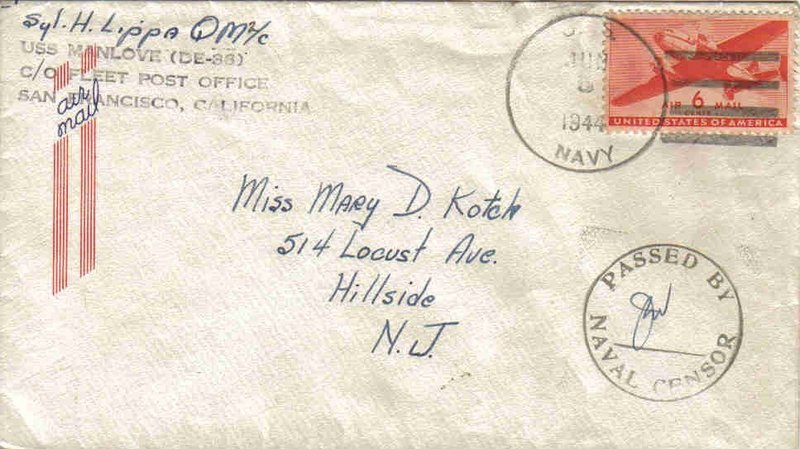 Syl. H. Lippa QM 2/c
USS MANLOVE (DE-36)
C/O FLEET POST OFFICE
SAN FRANCISCO, CALIFORNIA
air
mail
U.S.
JUN
8
1944
NAVY
AIR 6 MAIL
CENTS
UNITED STATES OF AMERICA
Miss Mary D. Kotch
514 Locust Ave.
Hillside
N.J.
PASSED BY
NAVAL CENSOR